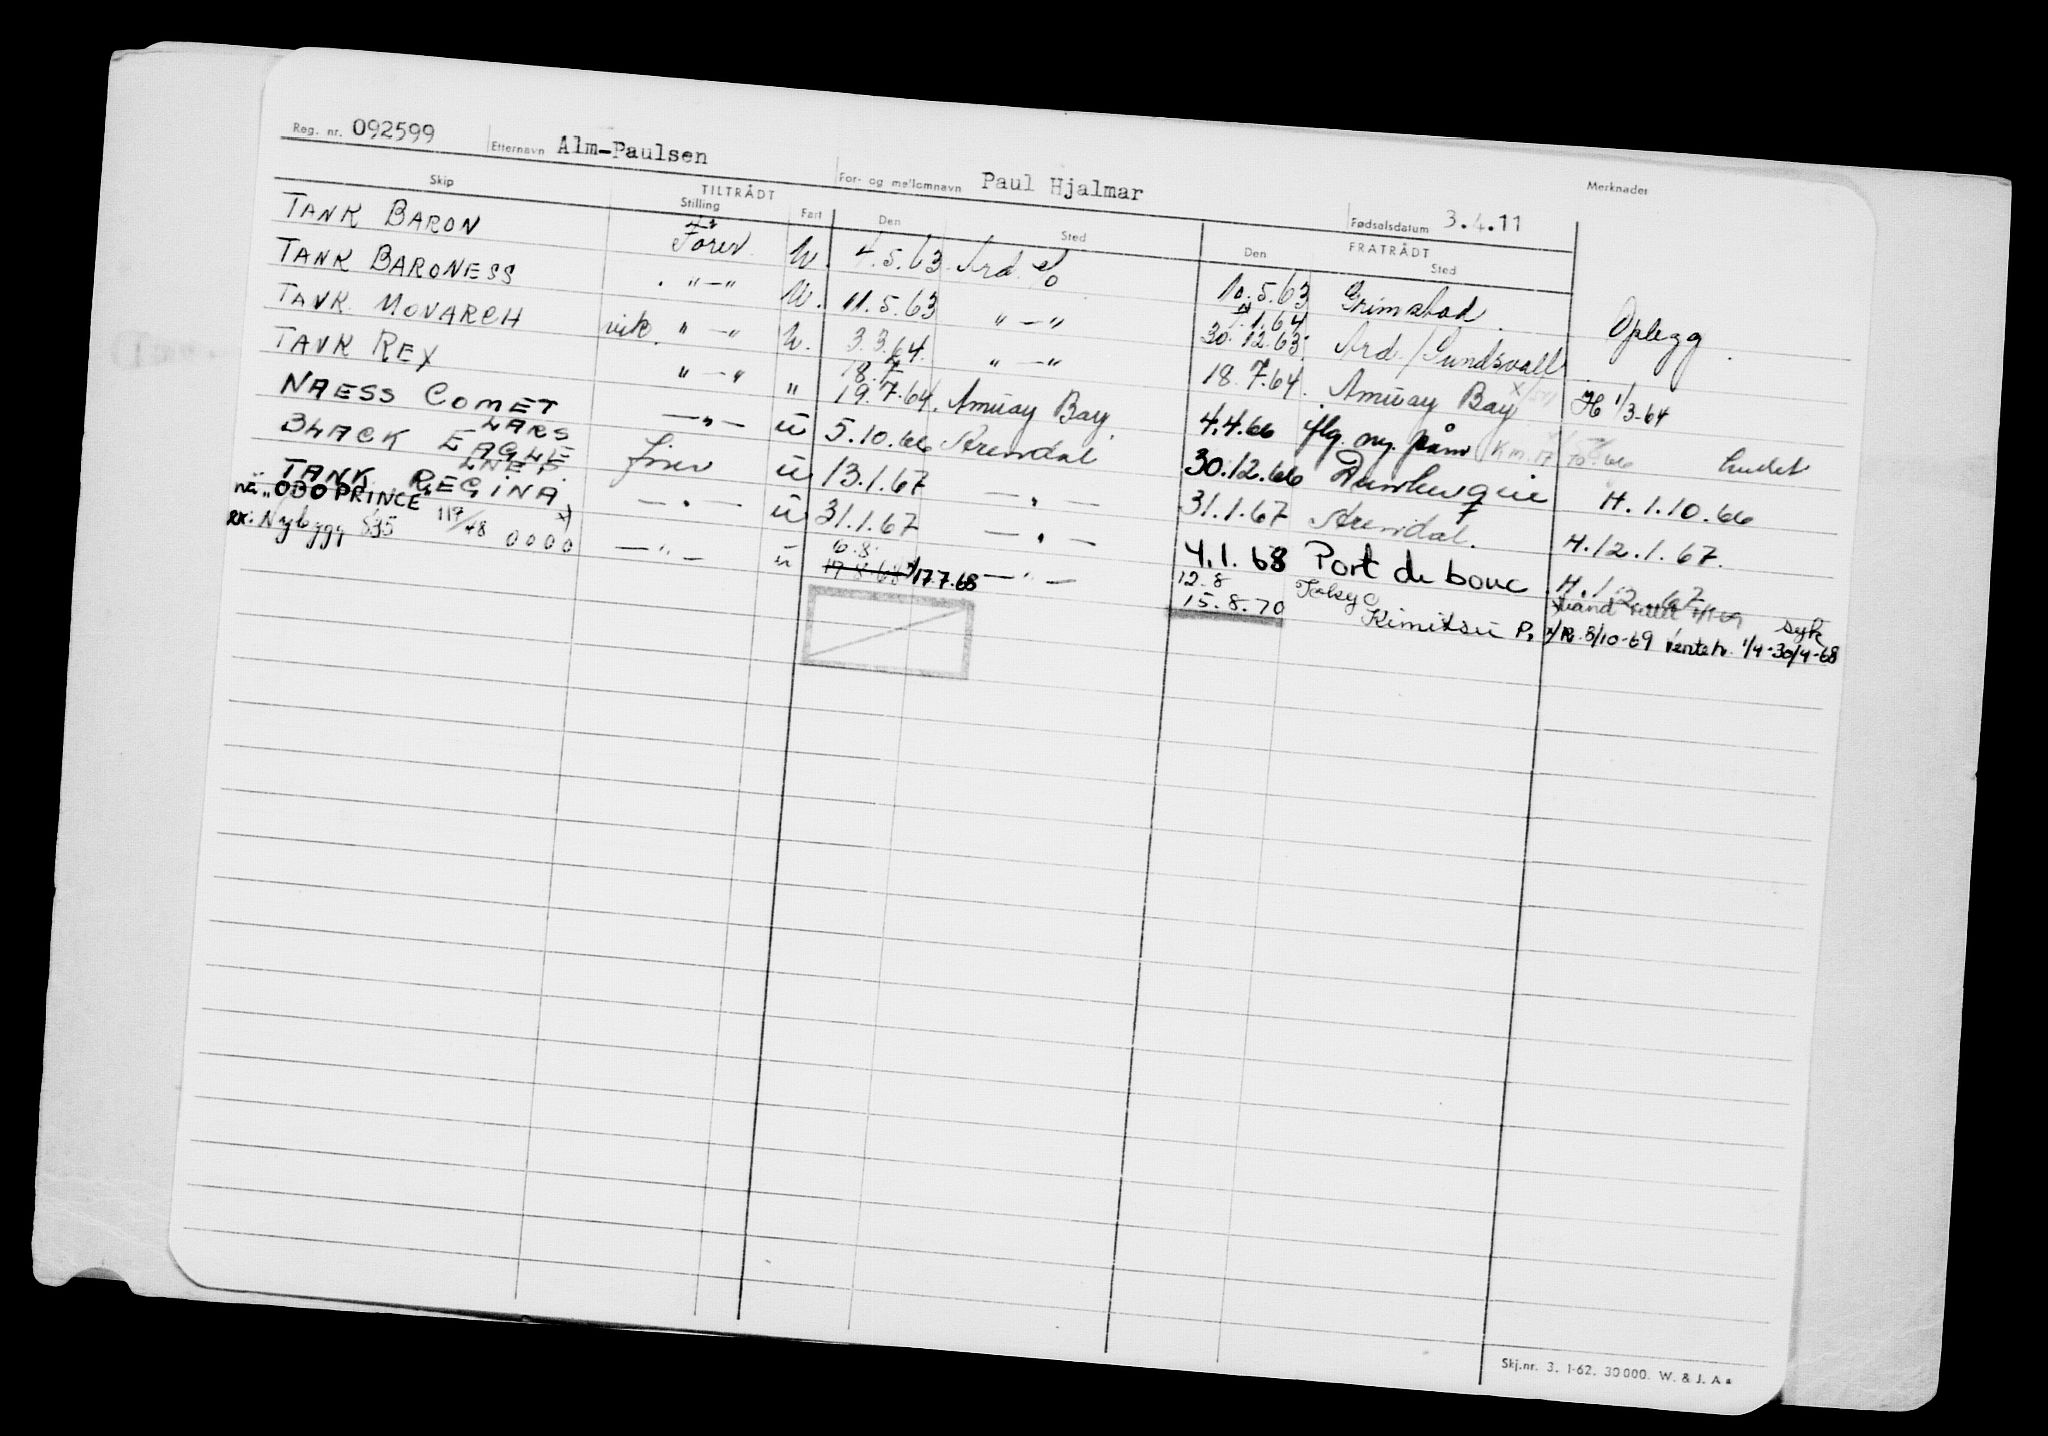 Reg. nr. 092599 Etternavn Alm-Paulsen For- og mellomnavn Paul Hjalmar Fødselsdatum 3.4.11 Merknader
Skip TILTRÅDT FRATRÅDT
Stilling Fart Den Sted Den Sted
TANK BARON 4.5.63 Ard. 10.5.63 Grimstad Oplegg
TANK BARONESS "-" 11.5.63 "-" 7.1.64 30.12.63 Ard./Sundsvall H 1/3-64
TANK MONARCH vik. "-" 3.3.64 "-" 18.7.64 Amuay Bay
TANK REX "-" " 18.7 19.7.64 Amuay Bay 4.4.66 iflg. ny. påm
NAESS COMET LARS -"- u 5.10.66 Arendal 30.12.66 Dunkerque H.1.10.66
BLACK EAGLE u 13.1.67 -"- 31.1.67 Arendal. H.12.1.67.
TANK REGINA -"- u 31.1.67 -"- 4.1.68 Port de bouc H.1.2.67 syk
nå "OBO PRINCE" 119/48
Nybygg 535 0000 -"- u 6.8 17.7.68 -"- 12.8 15.8.70 Kimitsu P. 8/10-69 Venteh. 1/4-30/4-68
Skj.nr. 3. 1-62. 30000. W. & J. A